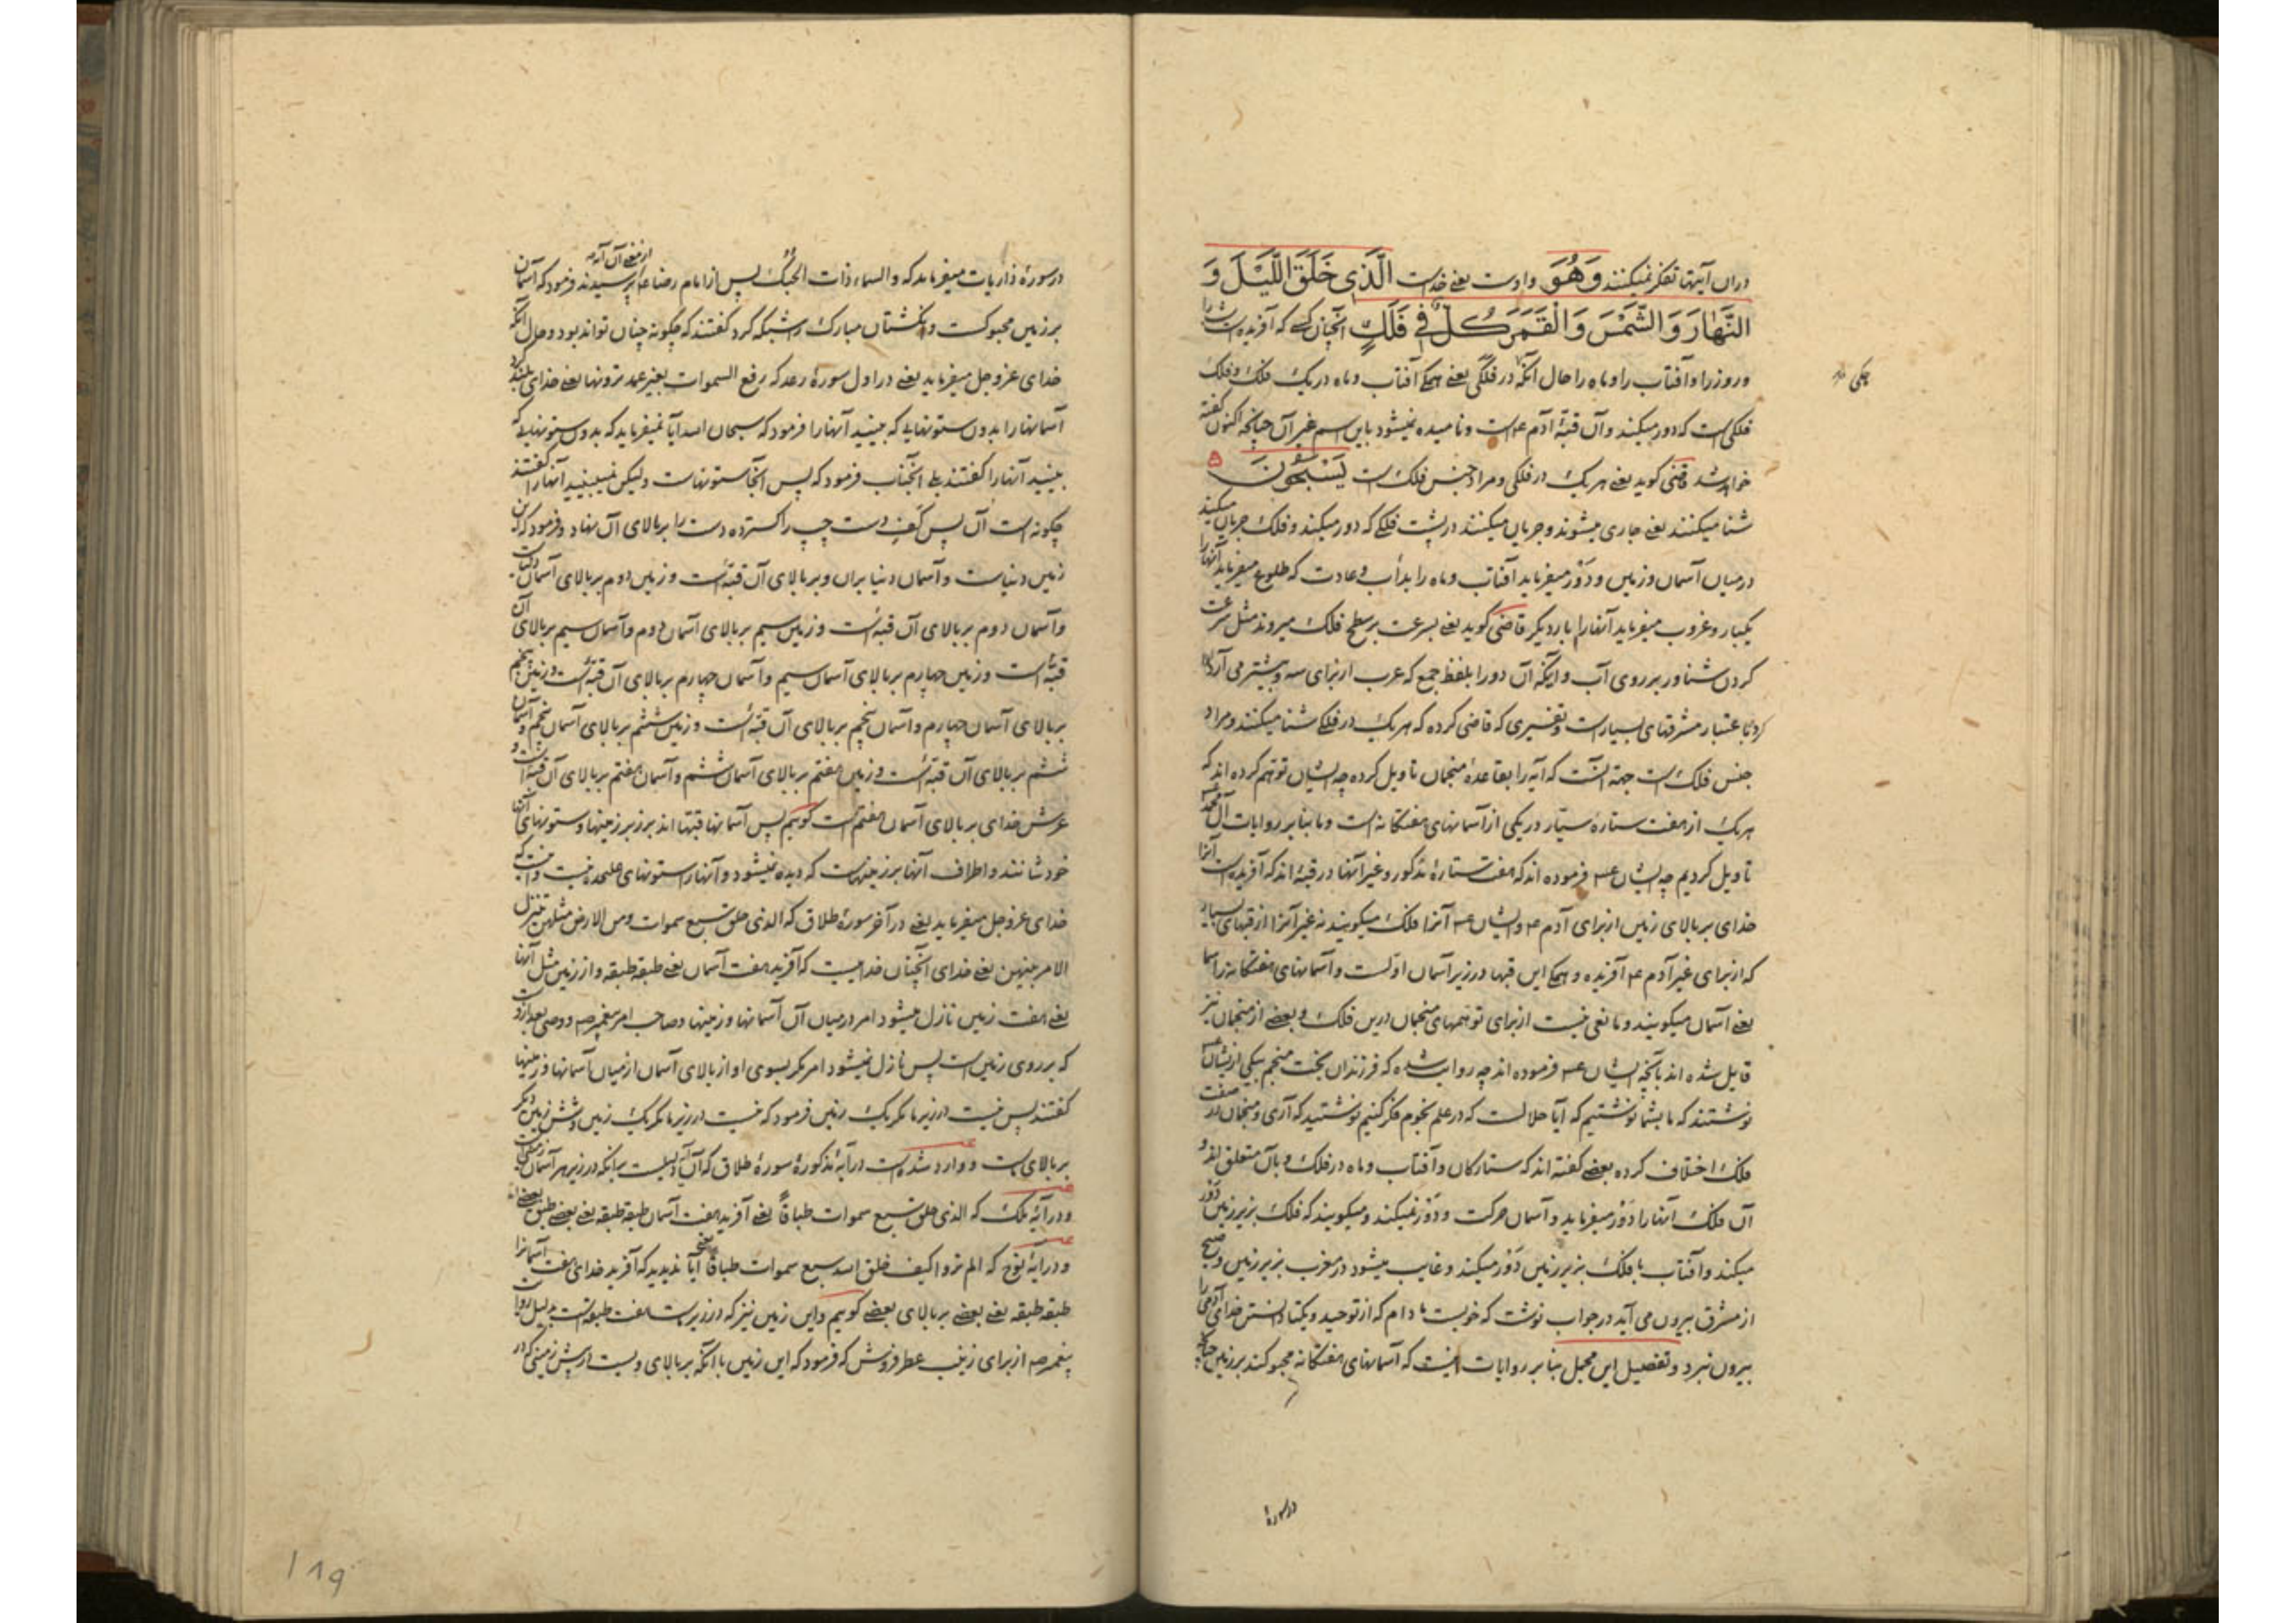 دران آیتها تفکر نمیکنند وَهُوَ و اوست یعنے خداست الَّذِی خَلَقَ اللَّیْلَ وَ
النَّهَارَ وَالشَّمْسَ وَالْقَمَرَ كُلٌّ فِی فَلَكٍ آنچنان کسے که آفریده است شب را
و روز را و آفتاب را و ماه را حال آنکه در فلکی یعنے همگے آفتاب و ماه در یک فلک و فلک
فلکی است که دور میکند و آن قبّهٔ آدم ع است و نامیده نمیشود باین اسم غیر آن چنانچه اکنون گفته
خواهد شد قاضی گوید یعنے هر یک در فلکی و مراد جنس فلک است یَسْبَحُونَ
شنا میکنند یعنے جاری میشوند و جریان میکنند در پشت فلکے که دور میکند و فلک جریان میکند
در میان آسمان و زمین و دَوْر میفرماید آفتاب و ماه را بدأب و عادت که طلوع میفرماید آنها را
یکبار و غروب میفرماید آنها را بار دیگر قاضی گوید یعنے بسرعت بر سطح فلک میروند مثل سرعت
کردن شناور بر روی آب و اینکه آن دو را بلفظ جمع که عرب از برای سه و بیشتر می آرد
باعتبار مشرقهای بسیار است و تفسیری که قاضی کرده که هر یک در فلکے شنا میکنند و مراد
جنس فلک است جهة آنست که آیه را بقاعدهٔ منجمان تاویل کرده چه ایشان توهم کرده اند که
هر یک از هفت ستارهٔ سیّار در یکی از آسمانهای هفتگانه است و ما بنا بر روایات آل محمد
تاویل کردیم چه ایشان ع فرموده اند که هفت ستارهٔ مذکور و غیر آنها در قبّهٔ اند که آفریده است آنرا
خدای بر بالای زمین از برای آدم ع و ایشان ع آنرا فلک میگویند نه غیر آنرا از قبهای بسیار
که از برای غیر آدم ع آفریده و همگے این قبها در زیر آسمان اوّلست و آسمانهای هفتگانه را سما
یعنے آسمان میگویند و مانعی نیست از برای توهمهای منجمان درین فلک و بعضے از منجمان نیز
قایل شده اند بآنچه ایشان ع فرموده اند چه روایت شده که فرزندان بخت منجم بیکی از ایشان ع
نوشتند که ما بشما نوشتیم که آیا حلالست که در علم نجوم فکر کنیم نوشتید که آری و منجمان در صفت
فلک اختلاف کرده بعضے گفته اند که ستارگان و آفتاب و ماه در فلک و بآن متعلق اند و
آن فلک آنها را دَوْر میفرماید و آسمان حرکت و دَوْر نمیکند و میگویند که فلک بزیر زمین دَوْر
میکند و آفتاب با فلک بزیر زمین دَوْر میکند و غایب میشود در مغرب بزیر زمین و صبح
از مشرق بیرون می آید در جواب نوشت که خوبست مادام که از توحید و یکتا دانستن خدای آدمی را
بیرون نبرد و تفصیل این مجمل بنا بر روایات اینست که آسمانهای هفتگانه محبوکند بر زمین چنانچه
در سورهٔ
در سورهٔ ذاریات میفرماید که والسماء ذات الحُبُک پس از امام رضا ع از معنے آن آیه پرسیدند فرمود که آسمان
بر زمین محبوکست و انگشتان مبارک را شبکه کرد گفتند که چگونه چنان تواند بود و حال آنکه
خدای عزوجل میفرماید یعنے در اول سورهٔ رعد که رفع السموات بغیر عمد ترونها یعنے خدای بلند کرد
آسمانها را بدون ستونهایے که ببینید آنها را فرمود که سبحان الله آیا نمیفرماید که بدون ستونهایے که
ببینید آنها را گفتند بلے آنجناب فرمود که پس آنجا ستونهاست ولیکن نمیبینید آنها را گفتند
چگونه است آن پس کف دست چپ را گسترده دست را بر بالای آن نهاد و فرمود که این
زمین دنیاست و آسمان دنیا بران و بر بالای آن قبّه است و زمین دوم بر بالای آسمان دنیاست
و آسمان دوم بر بالای آن قبّه است و زمین سیم بر بالای آسمان دوم و آسمان سیم بر بالای آن
قبّه است و زمین چهارم بر بالای آسمان سیم و آسمان چهارم بر بالای آن قبّه است و زمین پنجم
بر بالای آسمان چهارم و آسمان پنجم بر بالای آن قبّه است و زمین ششم بر بالای آسمان پنجم و آسمان
ششم بر بالای آن قبّه است و زمین هفتم بر بالای آسمان ششم و آسمان هفتم بر بالای آن قبّه است و
عرش خدای بر بالای آسمان هفتم است گوییم پس آسمانها قبّها اند بر زبر زمینها و ستونهای آنها
خودشانند و اطراف آنها بر زمینهاست که دیده نمیشود و آنها را ستونهای علیحده نیست و اینست که
خدای عزوجل میفرماید یعنے در آخر سورهٔ طلاق که الذی خلق سبع سموات ومن الارض مثلهن یتنزل
الامر بینهن یعنے خدای آنچنان خداییست که آفرید هفت آسمان یعنے طبقه طبقه و از زمین مثل آنها
یعنے هفت زمین نازل میشود امر در میان آن آسمانها و زمینها و صاحب امر پیغمبر ص و وصی بعد از وست
که بر روی زمین است پس نازل نمیشود امر مگر بسوی او از بالای آسمان از میان آسمانها و زمینها
گفتند پس نیست در زیر ما مگر یک زمین فرمود که نیست در زیر ما مگر یک زمین و شش زمین دیگر
بر بالای ماست و وارد شده است در آیهٔ مذکورهٔ سورهٔ طلاق که آن آیه دلیلست بر آنکه در زیر هر آسمان زمینی است
و در آیهٔ ملک که الذی خلق سبع سموات طباقاً یعنے آفرید هفت آسمان طبقه طبقه یعنے بعضے طبق بعضے اند
و در آیهٔ نوح که الم تروا کیف خلق الله سبع سموات طباقاً یعنے آیا ندیدید که آفرید خدای هفت آسمانرا
طبقه طبقه یعنے بعضے بر بالای بعضے گوییم و این زمین نیز که در زیر ماست هفت طبقه است بدلیل روایت
پیغمبر ص از برای زینب عطر فروش که فرمود که این زمین با آنکه بر بالای ویست در پیش زمینی که در
۱۸۹